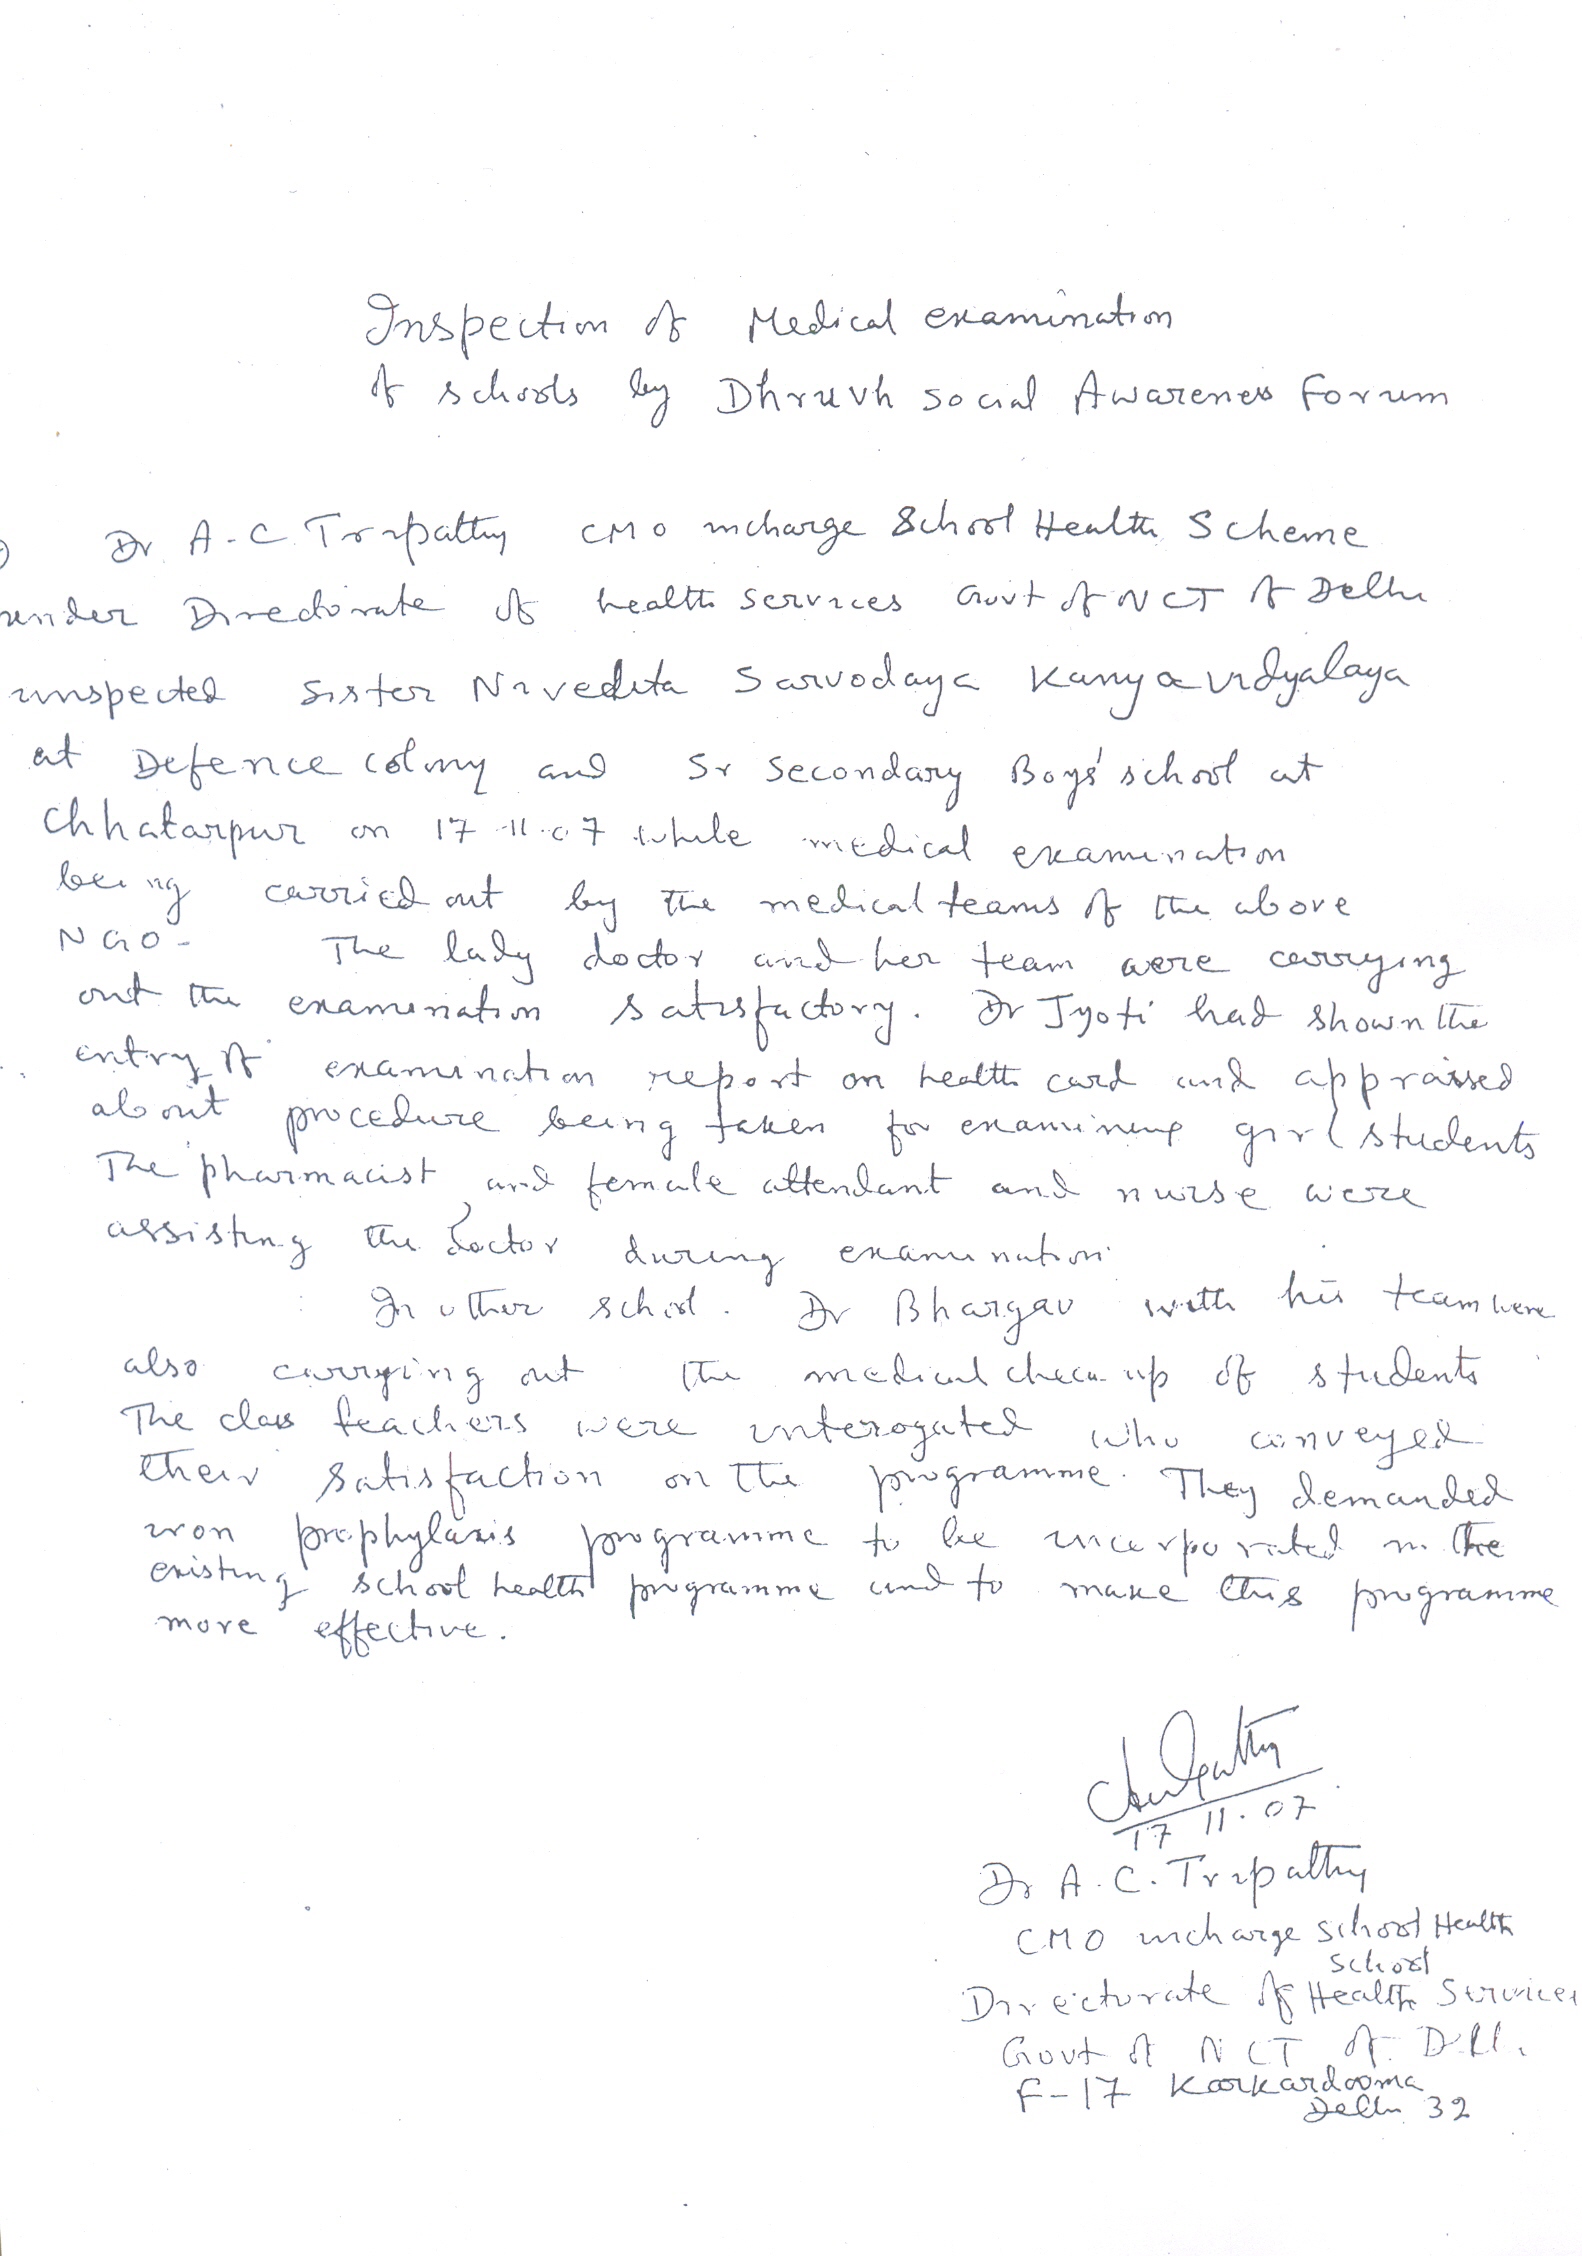 Inspection of Medical examination
of schools by Dhruvh social Awareness Forum
Dr A.C Tripathy CMO incharge School Health Scheme
under Directorate of health services Govt of NCT of Delhi
inspected Sister Nivedita Sarvodaya Kanya vidyalaya
at Defence colony and Sr Secondary Boys' school at
Chhatarpur on 17.11.07 while medical examination
being carried out by the medical teams of the above
NGO- The lady doctor and her team were carrying
out the examination satisfactory. Dr Jyoti had shown the
entry of examination report on health card and appraised
about procedure being taken for examining girl students
The pharmacist, and female attendant and nurse were
assisting the doctor during examination.
In other school. Dr Bhargav with his team were
also carrying out the medical check up of students
The class teachers were interogated who conveyed
their satisfaction on the programme. They demanded
iron prophylaxis programme to be incorporated in the
existing school health programme and to make this programme
more effective.
17 11.07
Dr A.C. Tripathy
CMO incharge School Health
School
Directorate of Health Services
Govt of NCT of Delhi
F-17 Karkardooma
Delhi 32